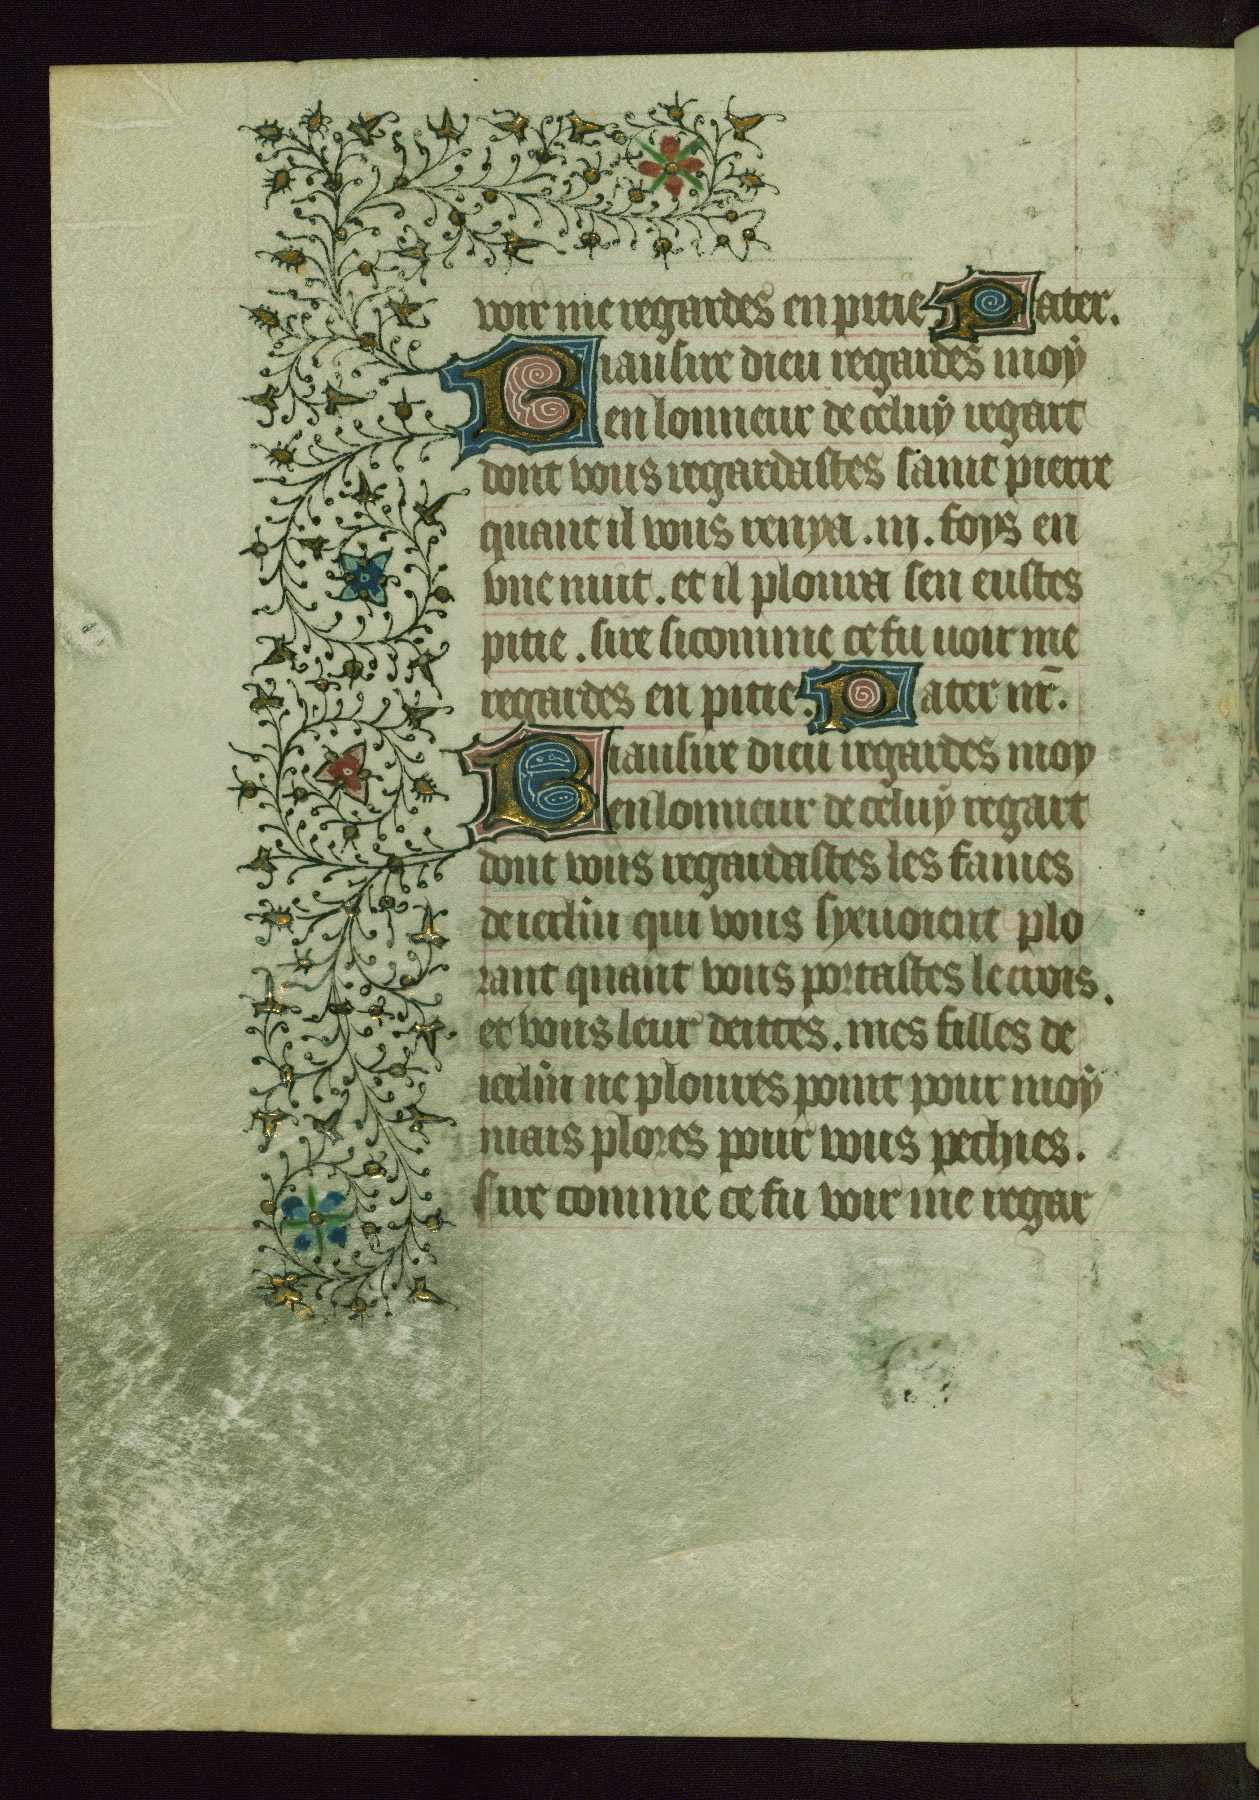 voir me regardes en pitie Pater.
Biausire dieu regardes moÿ
en lonneur de celuÿ regart
dont vous regardastes saint pierre
quant il vous renya .iij. foys en
vne nuit . et il ploura sen eustes
pitie . sire sicomme ce fu uoir me
regardes en pitie. Pater nr̄.
Biausire dieu regardes moy
en lonneur de celuÿ regart
dont vous regardastes les fames
de ierlīm qui vous syeuoient plo
rant quant vous portastes le crois.
et vous leur deittes . mes filles de
ierlīm ne ploures point pour moÿ
mais plores pour vous pechies .
sire comme ce fu voir me regar